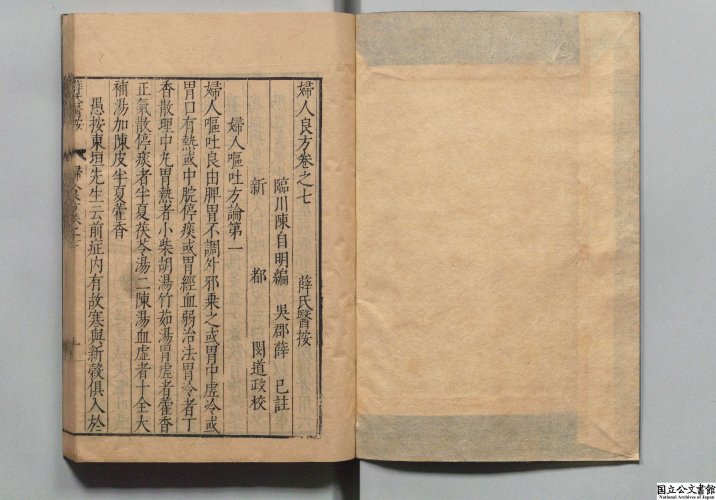 婦人良方卷之七 薛氏醫按
臨川陳自明編 吳郡薛 已註
新 都 閔道政校
婦人嘔吐方論第一
婦人嘔吐良由脾胃不調外邪乘之或胃中虛冷或
胃口有熱或中脘停痰或胃經血弱治法胃冷者丁
香散理中丸胃熱者小柴胡湯竹茹湯胃虛者藿香
正氣散停痰者半夏茯苓湯二陳湯血虛者十全大
補湯加陳皮半夏藿香
愚按東垣先生云前症內有故寒與新穀俱入於
薛氏醫按
国立公文書館
National Archives of Japan